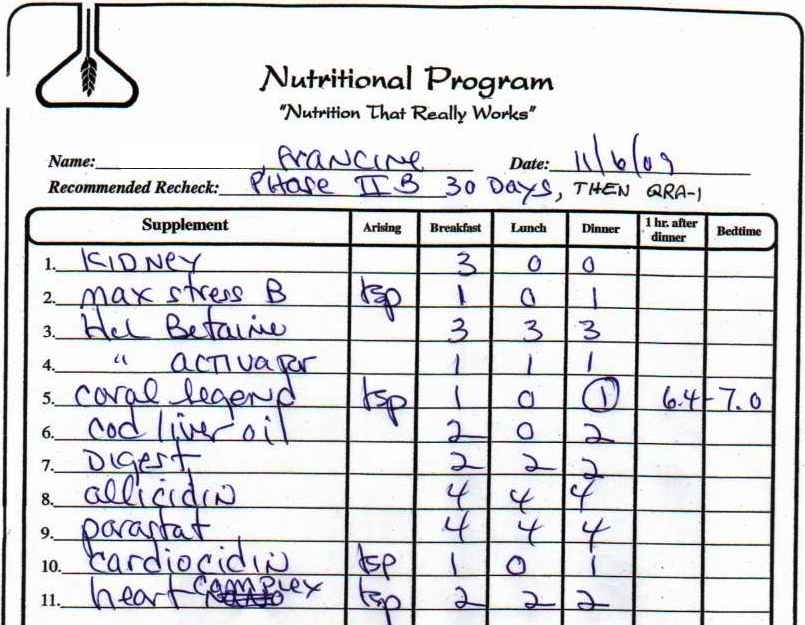 Nutritional Program
"Nutrition That Really Works"
Name: , Francine Date: 11/6/09
Recommended Recheck: Phase II B 30 Days, THEN QRA-1
Supplement Arising Breakfast Lunch Dinner 1 hr. after dinner Bedtime
1. KIDNEY 3 0 0
2. max stress B tsp 1 0 1
3. Hcl Betaine 3 3 3
4. " activator 1 1 1
5. coral legend tsp 1 0 1 6.4-7.0
6. cod liver oil 2 0 2
7. Digest 2 2 2
8. allicidin 4 4 4
9. parastat 4 4 4
10. cardiocidin tsp 1 0 1
11. heart complex tsp 2 2 2